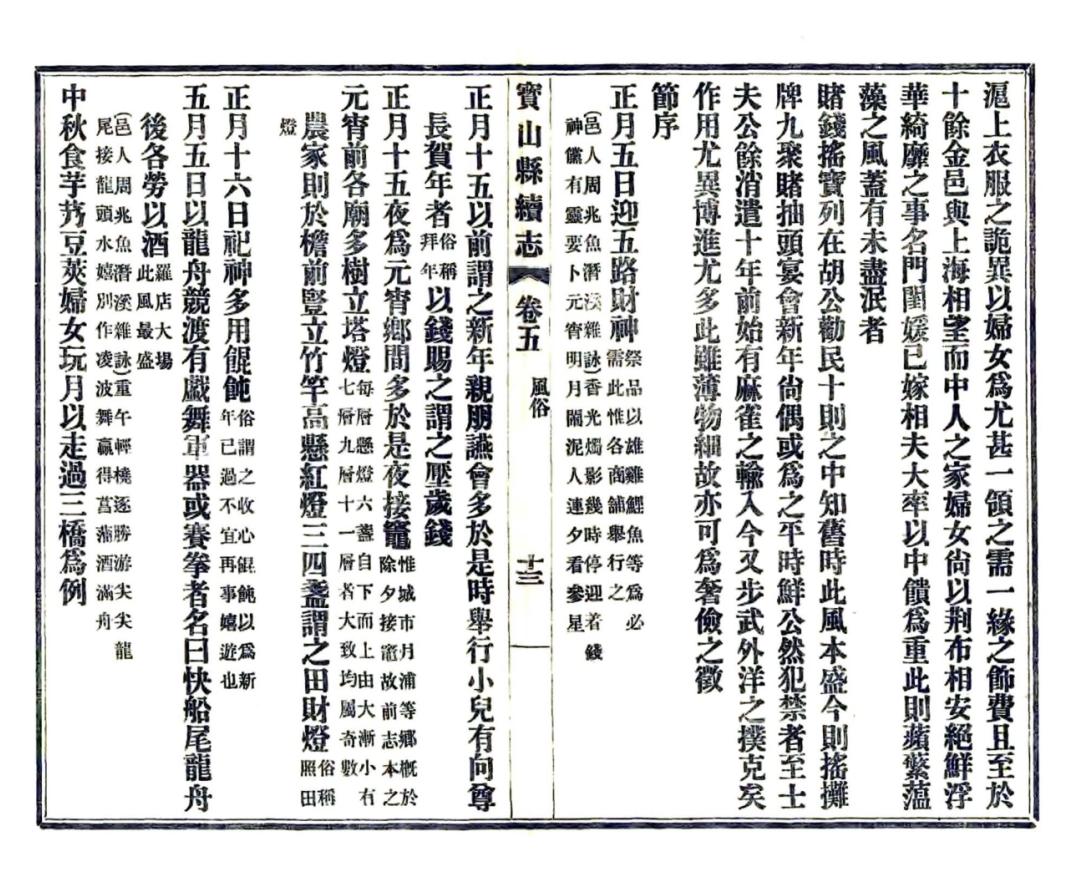 滬上衣服之詭異以婦女爲尤甚一領之需一緣之飾費且至於
十餘金邑與上海相望而中人之家婦女尙以荆布相安絕鮮浮
華綺靡之事名門閨媛已嫁相夫大率以中饋爲重此則蘋蘩薀
藻之風蓋有未盡泯者
賭錢搖寶列在胡公勸民十則之中知舊時此風本盛今則搖攤
牌九聚賭抽頭宴會新年尙偶或爲之平時鮮公然犯禁者至士
夫公餘消遣十年前始有麻雀之輸入今又步武外洋之撲克矣
作用尤異博進尤多此雖薄物細故亦可爲奢儉之徵
節序
正月五日迎五路財神祭品以雄雞鯉魚等爲必需此惟各商舖舉行之
(邑人周兆魚潛溪雜詠)香光燭影幾時停迎着錢
神儻有靈要卜元宵明月閙泥人連夕看參星
寶山縣續志 卷五 風俗 十三
正月十五以前謂之新年親朋讌會多於是時舉行小兒有向尊
長賀年者俗稱拜年以錢賜之謂之壓歲錢
正月十五夜爲元宵鄉間多於是夜接竈惟城市月浦等鄉槪於除夕接竈故前志本之
元宵前各廟多樹立塔燈每層懸燈六盞自下而上由大漸小有七層九層十一層者大致均屬奇數
農家則於檐前豎立竹竿高懸紅燈三四盞謂之田財燈俗稱照田
燈
正月十六日祀神多用餛飩俗謂之收心餛飩以爲新年已過不宜再事嬉遊也
五月五日以龍舟競渡有戲舞軍器或賽拳者名曰快船尾龍舟
後各勞以酒羅店大場此風最盛
(邑人周兆魚潛溪雜詠)重午輕橈逐勝游尖尖龍
尾接龍頭水嬉別作凌波舞贏得菖蒲酒滿舟
中秋食芋艿豆莢婦女玩月以走過三橋爲例